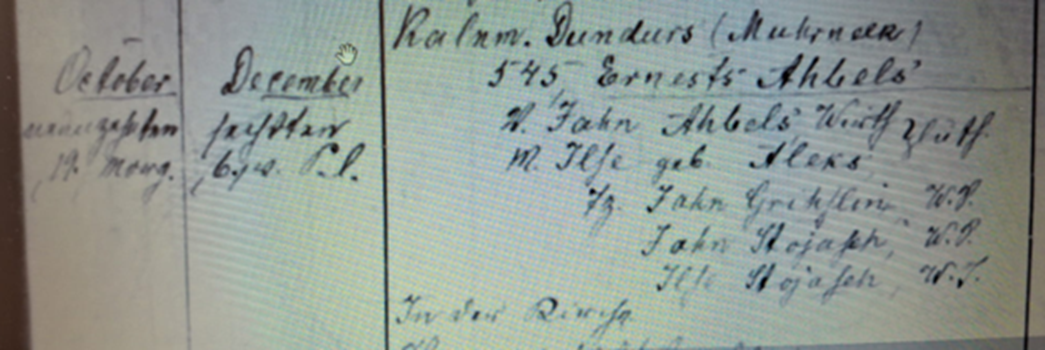 Kalnm. Dundurs (Muhrneek)
October
neunzehnten
19. Morg.
December
sechsten
6.
545, Ernests Ahbels'
V. Jahn Ahbels' Wirth } luth.
M. Ilse geb. Aleks,
Tz. Jahn Grihslin, W.S.
Jahn Stojasch, W.S.
Ilse Stojasch, W.T.
In der Kirche